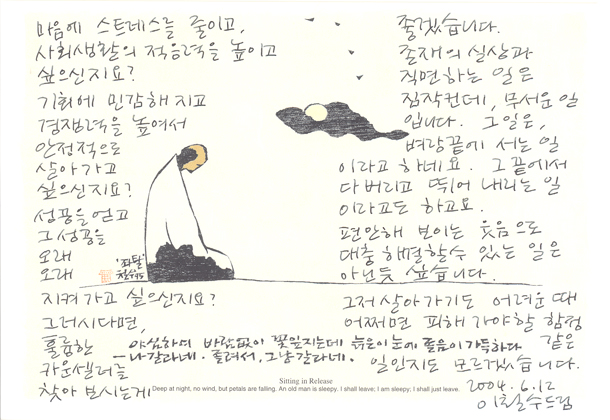 마음에 스트레스를 줄이고,
사회생활의 적응력을 높이고
싶으신지요?
기회에 민감해지고
경쟁력을 높여서
안정적으로
살아가고
싶으신지요?
성공을 얻고
그 성공을
오래
오래
지켜가고 싶으신지요?
그러시다면,
훌륭한
카운셀러를
찾아 보시는게
좋겠습니다.
존재의 실상과
직면하는 일은
짐작컨데, 무서운 일
입니다. 그 일은,
벼랑끝에 서는 일
이라고 하네요. 그 끝에서
다 버리고 뛰어 내리는 일
이라고도 하고요.
편안해 보이는 웃음으로
대충 해결할수 있는 일은
아닌듯 싶습니다.
그저 살아가기도 어려운 때
어쩌면 피해 가야할 함정
같은
일인지도 모르겠습니다.
2004.6.12
이철수드림
'좌탈'
야심하여 바람없이 꽃잎지는데 늙은이 눈에 졸음이 가득하다
─ 나갈라네. 졸려서, 그냥 갈라네.
Sitting in Release
Deep at night, no wind, but petals are falling. An old man is sleepy. I shall leave; I am sleepy; I shall just leave.